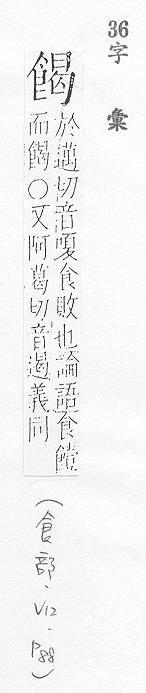 36字 彙
餲 於邁切音嗄食敗也論語食饐
而餲○又阿葛切音遏義同
(食部.V12.P88)